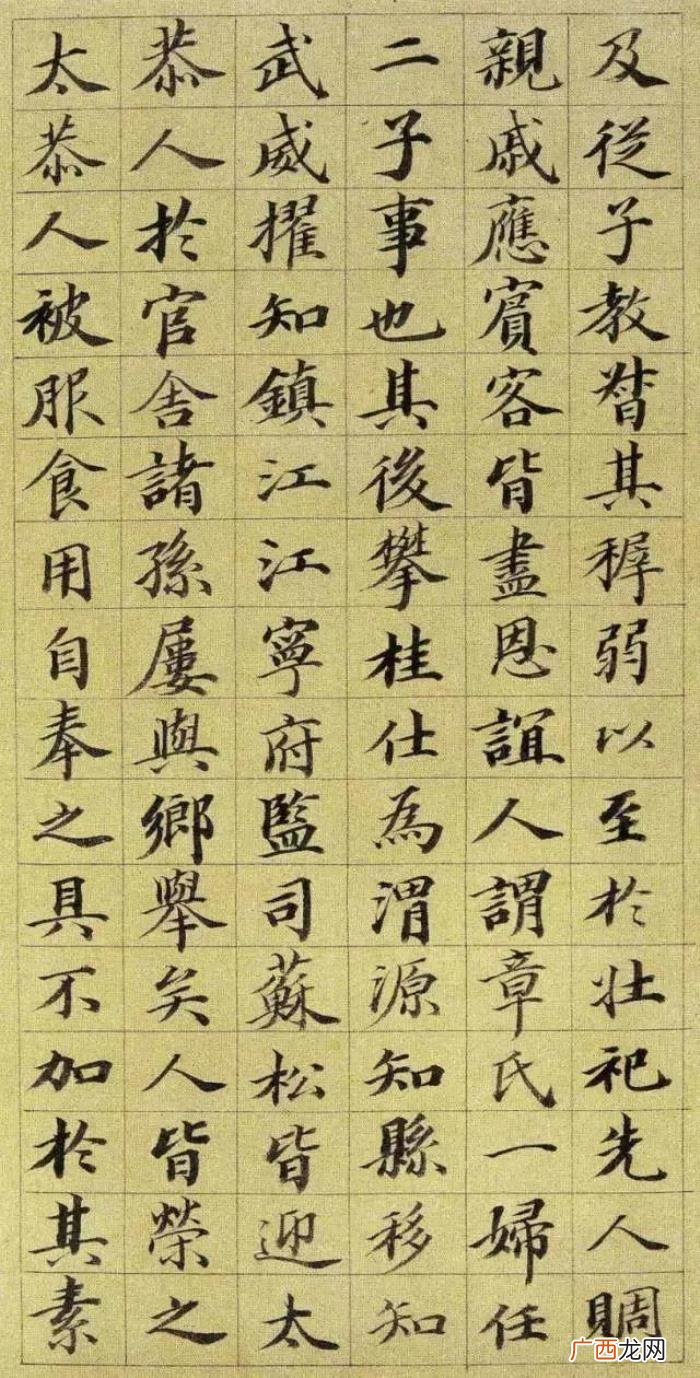 及從子教督其穉弱以至於壯祀先人賙
親戚應賓客皆盡恩誼人謂章氏一婦任
二子事也其後攀桂仕為渭源知縣移知
武威擢知鎮江江寧府監司蘇松皆迎太
恭人於官舍諸孫屢與鄉舉矣人皆榮之
太恭人被服食用自奉之具不加於其素
广西龙网